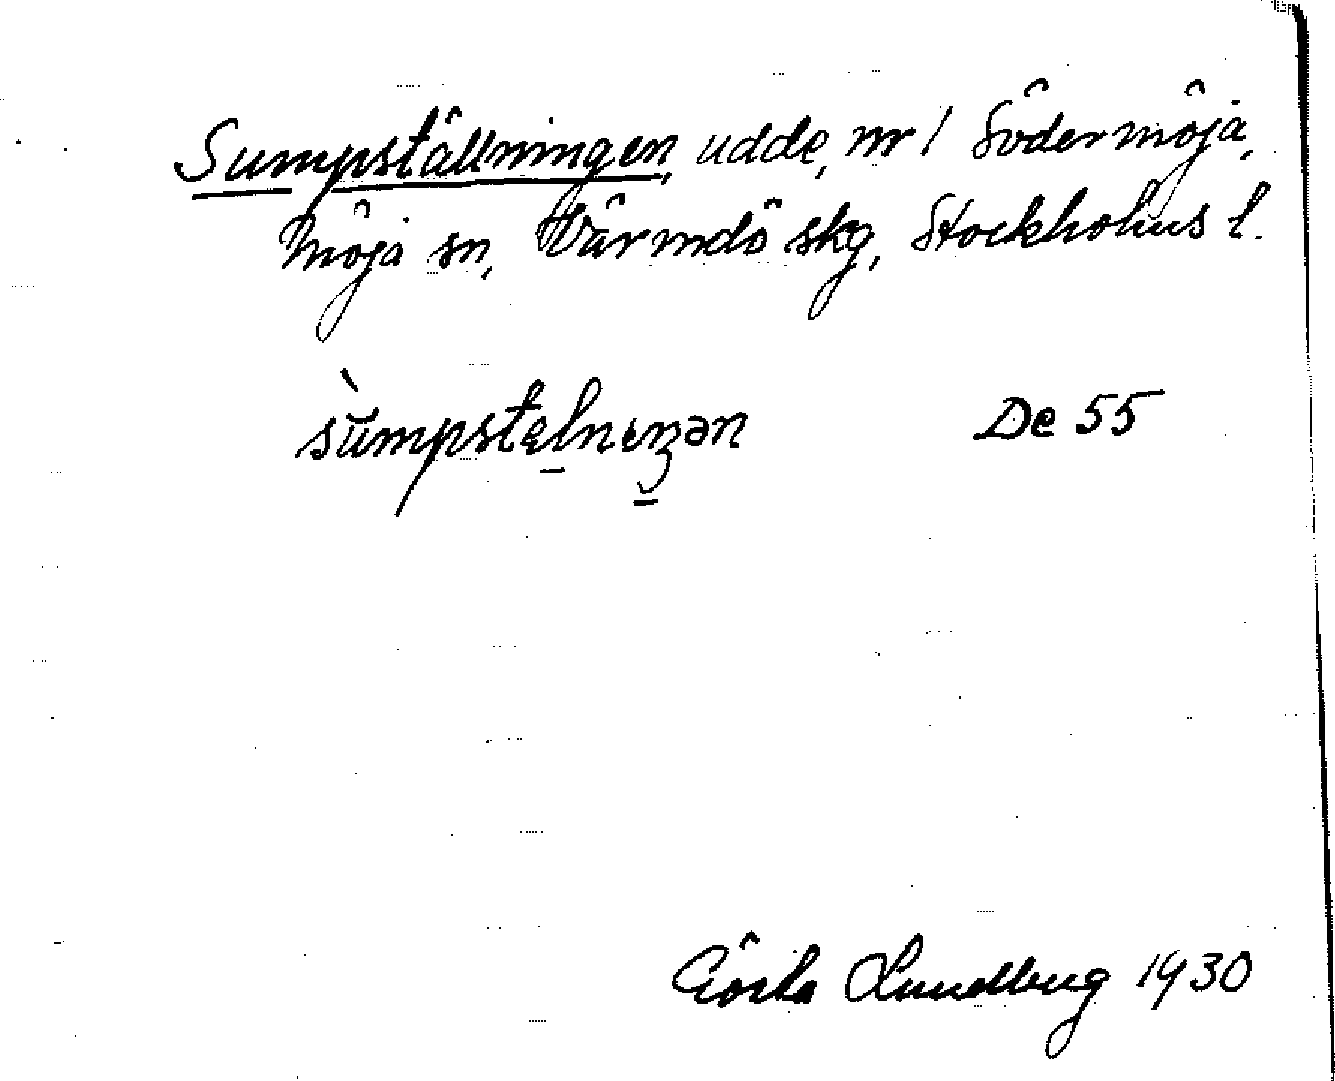 Sumpställningen, udde, nr 1 Södermöja,
Möja sn, Värmdö skg, Stockholms l.
sùmpstælnıŋən De 55
Gösta Lundberg 1930